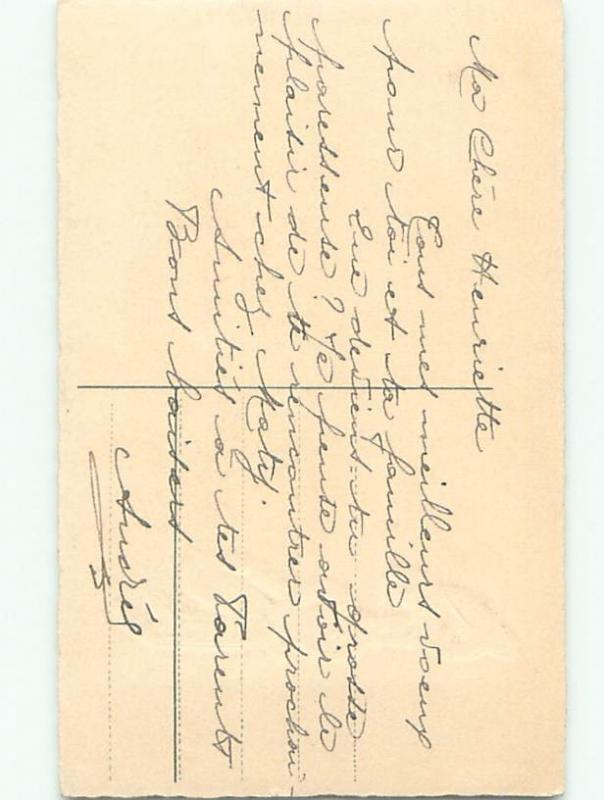 Ma Chère Henriette
Tous mes meilleurs voeux
pour toi et ta famille
Que devient-tu grosse
paresseuse? Je pense avoir le
plaisir de te rencontrer prochai-
nement chez Maty.
Amitiés à tes Parents
Bons baisers
Andrée